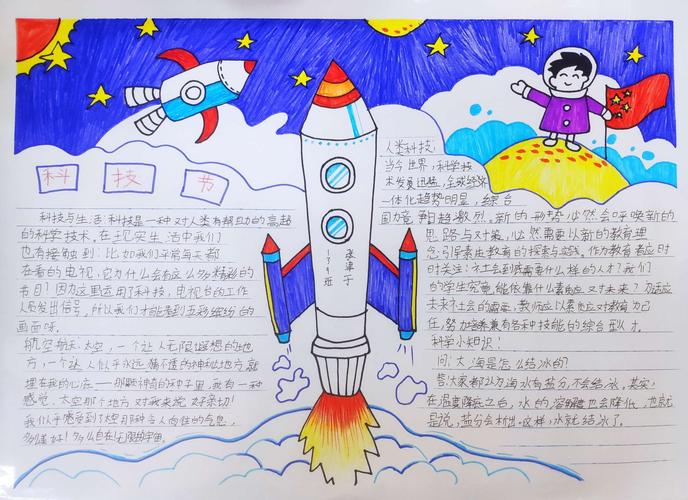 科 技 节
科技与生活:科技是一种对人类有帮助的高超
的科学技术。在现实生活中我们
也有接触到:比如我们平常每天都
在看的电视,它为什么会有这么多精彩的
节目?因为这里运用了科技,电视台的工作
人员发出信号。所以我们才能看到五彩缤纷的
画面呀。
航空航天:太空,一个让人无限遐想的地
方,一个让人似乎永远猜不透的神秘地方,就
埋在我的心底——那颗神奇的种子里,我有一种
感觉,太空那个地方对我来说好亲切!
我似乎感受到了太空那种令人向往的气息,
多美好!多么自在无限的宇宙。
139班
人类科技:
当今世界,科学技
术发展迅猛,全球经济
一体化趋势明显,综合
国力竞翱越激烈。新的形势必然会呼唤新的
思路与对策,必然需要以新的教育理
念引导素质教育的探索与实践。作为教育者应时
时关注:社会到底需要什么样的人才?我们
的学生究竟能依靠什么素质应对未来?为适应
未来社会的需要,教师应以素质应对教育为己
任,努力培养兼有各种技能的综合型人才。
科学小知识!
问:大海是怎么结冰的?
答:大家都以为海水有盐分,不会结冰。其实,
在温度降低之后,水的溶解度也会降低,也就
是说,盐分会析出,这样,水就结冰了。